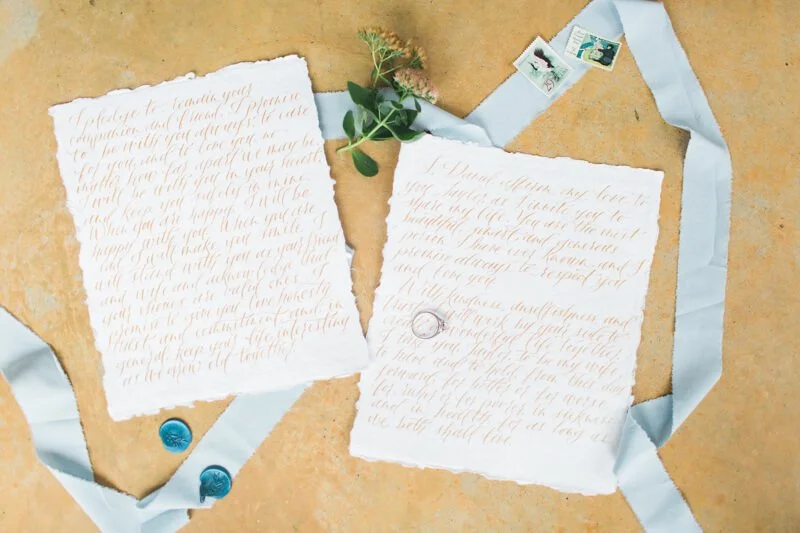 I pledge to remain your
companion and friend. I promise
to be with you always: to care
for you and to love you no
matter how far apart we may be
I will be with you in your heart
and keep you safely in mine.
When you are happy, I will be
happy with you. When you are
sad, I will make you smile. I
will stand with you as your friend
and wife and acknowledge that
your choices are valid ones. I
promise to give you love, honesty
trust and commitment and in
general, keep your life interesting
as we grow old together.
I, David affirm my love to
you, as I invite you to
share my life. You are the most
beautiful, smart, and generous
person I have ever known, and I
promise always to respect you
and love you.
With kindness, unselfishness and
trust, I will work by your side to
create a wonderful life together
I take you, to be my wife
to have and to hold from this day
forward, for better or for worse,
for richer or for poorer, in sickness
and in health, for as long as
we both shall live.